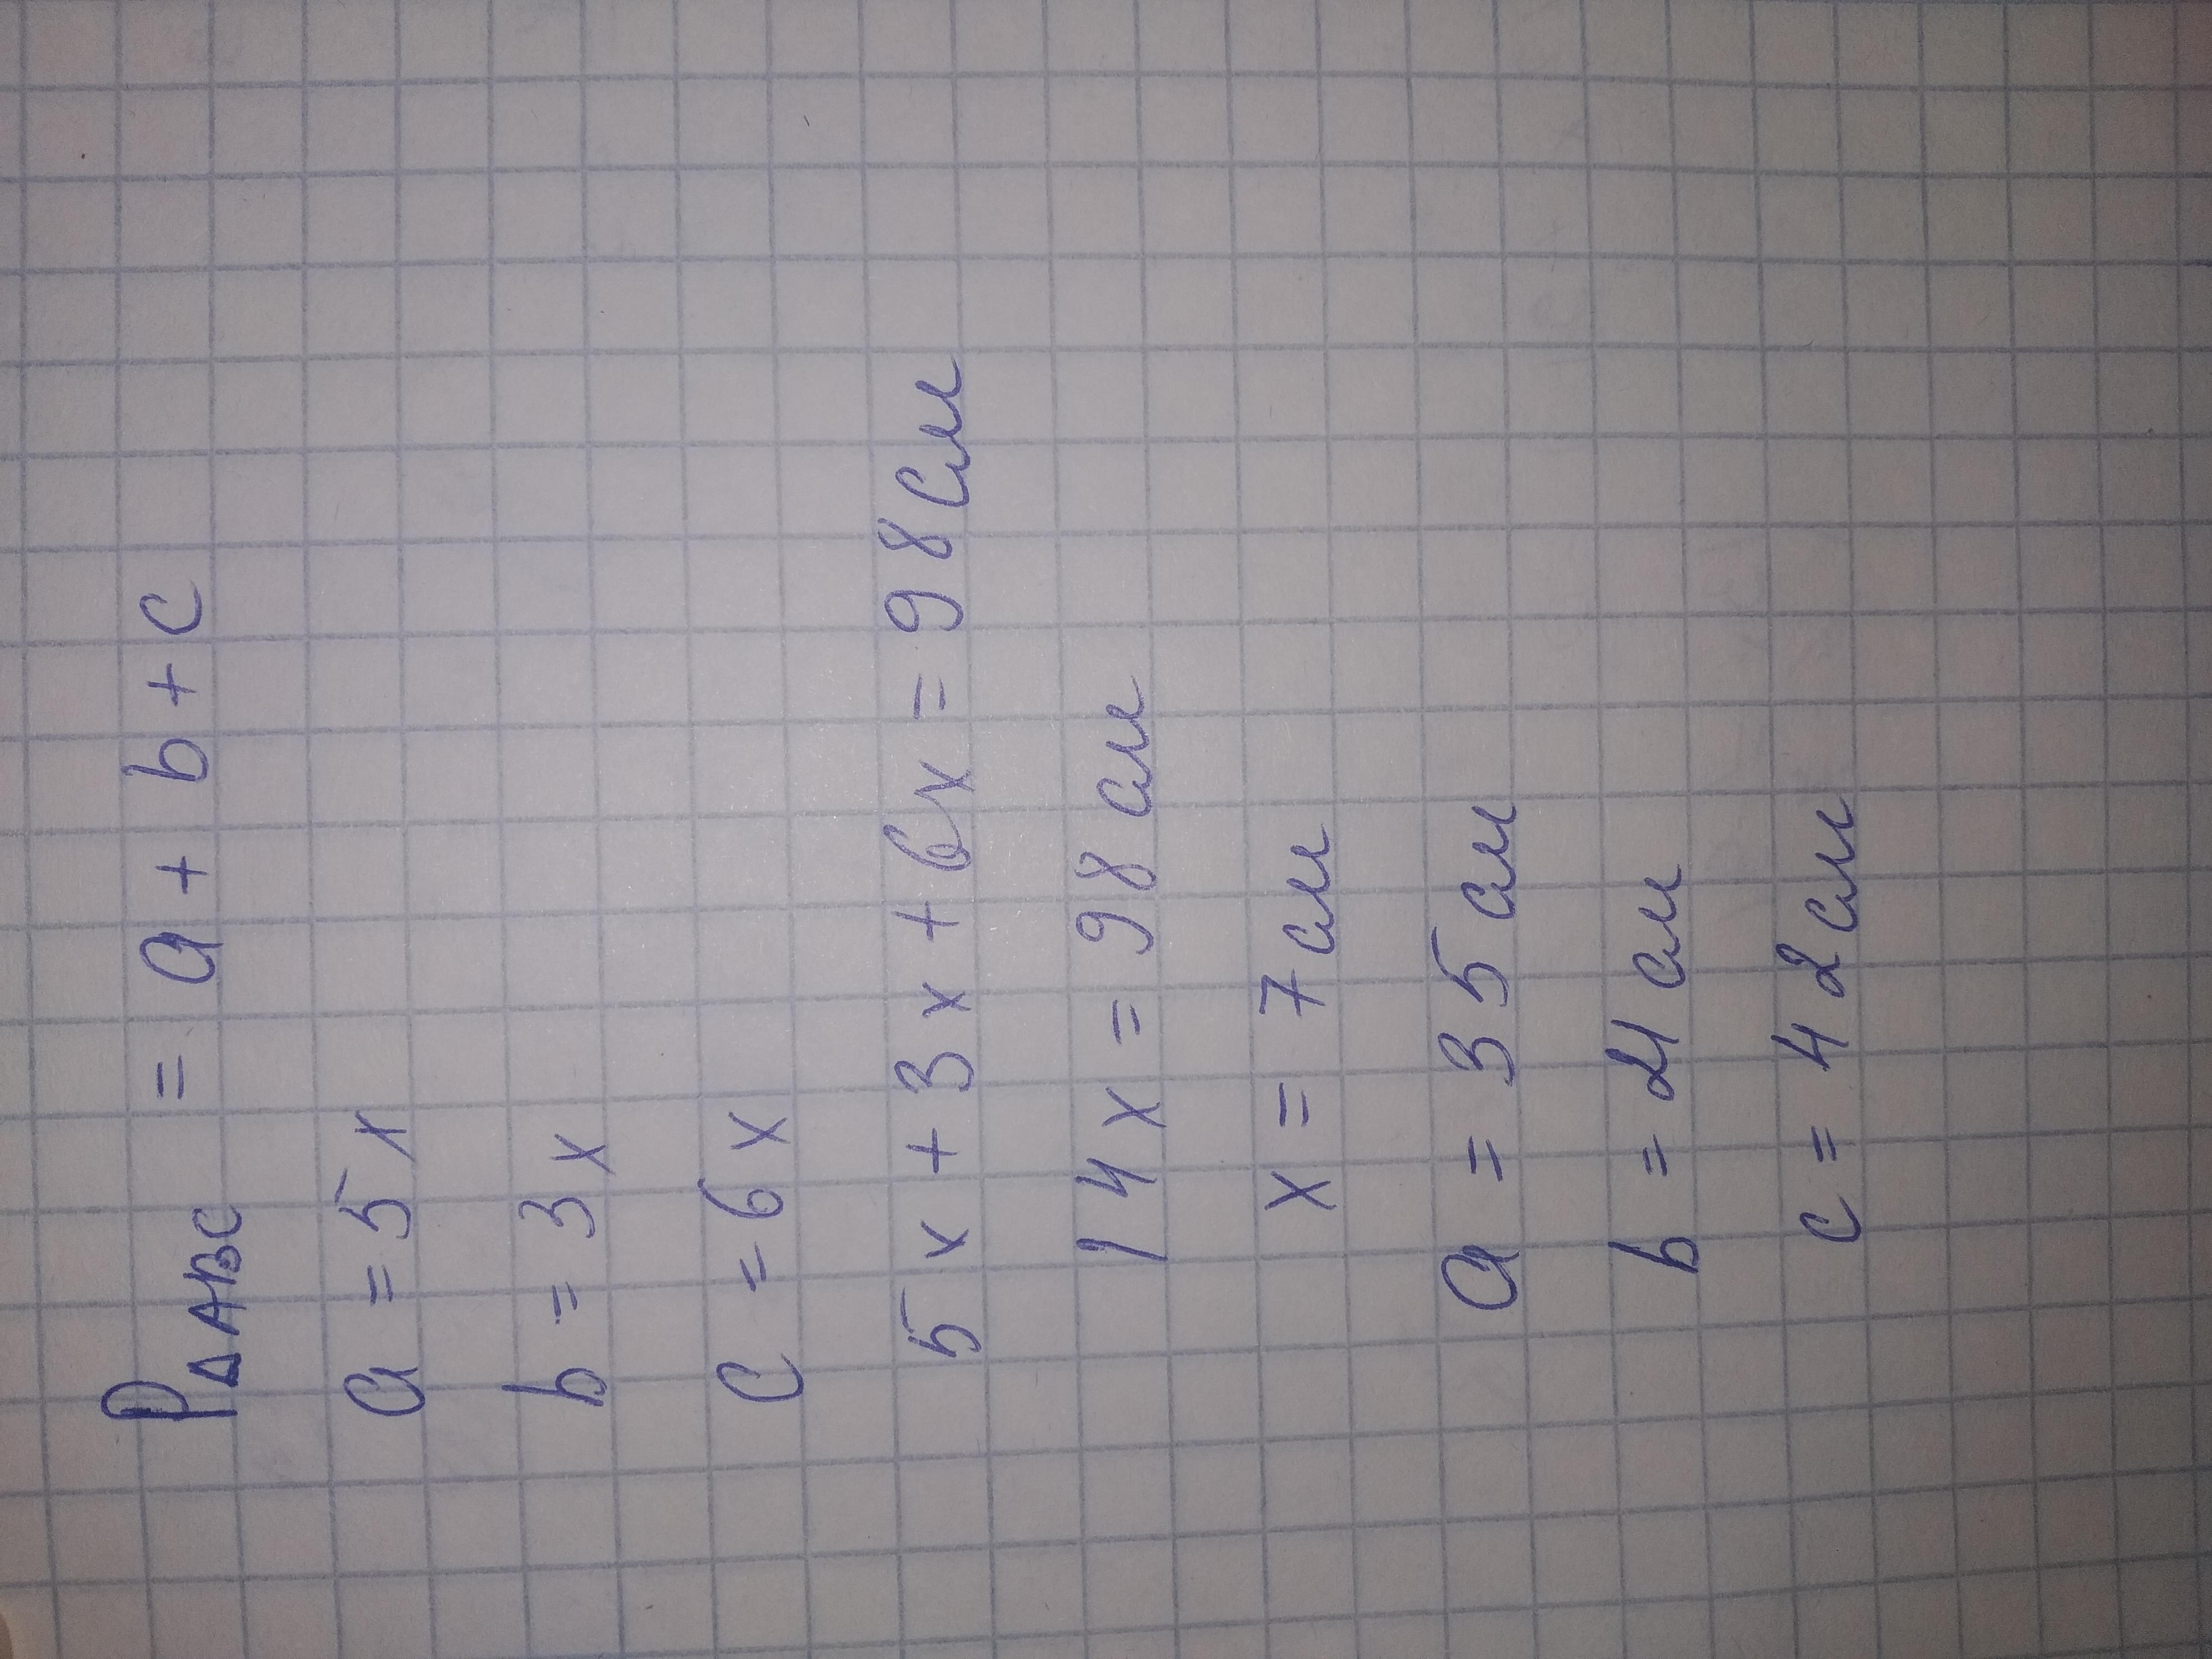 P△ABC = a + b + c
a = 5x
b = 3x
c = 6x
5x + 3x + 6x = 98см
14x = 98см
x = 7см
a = 35см
b = 21см
c = 42см